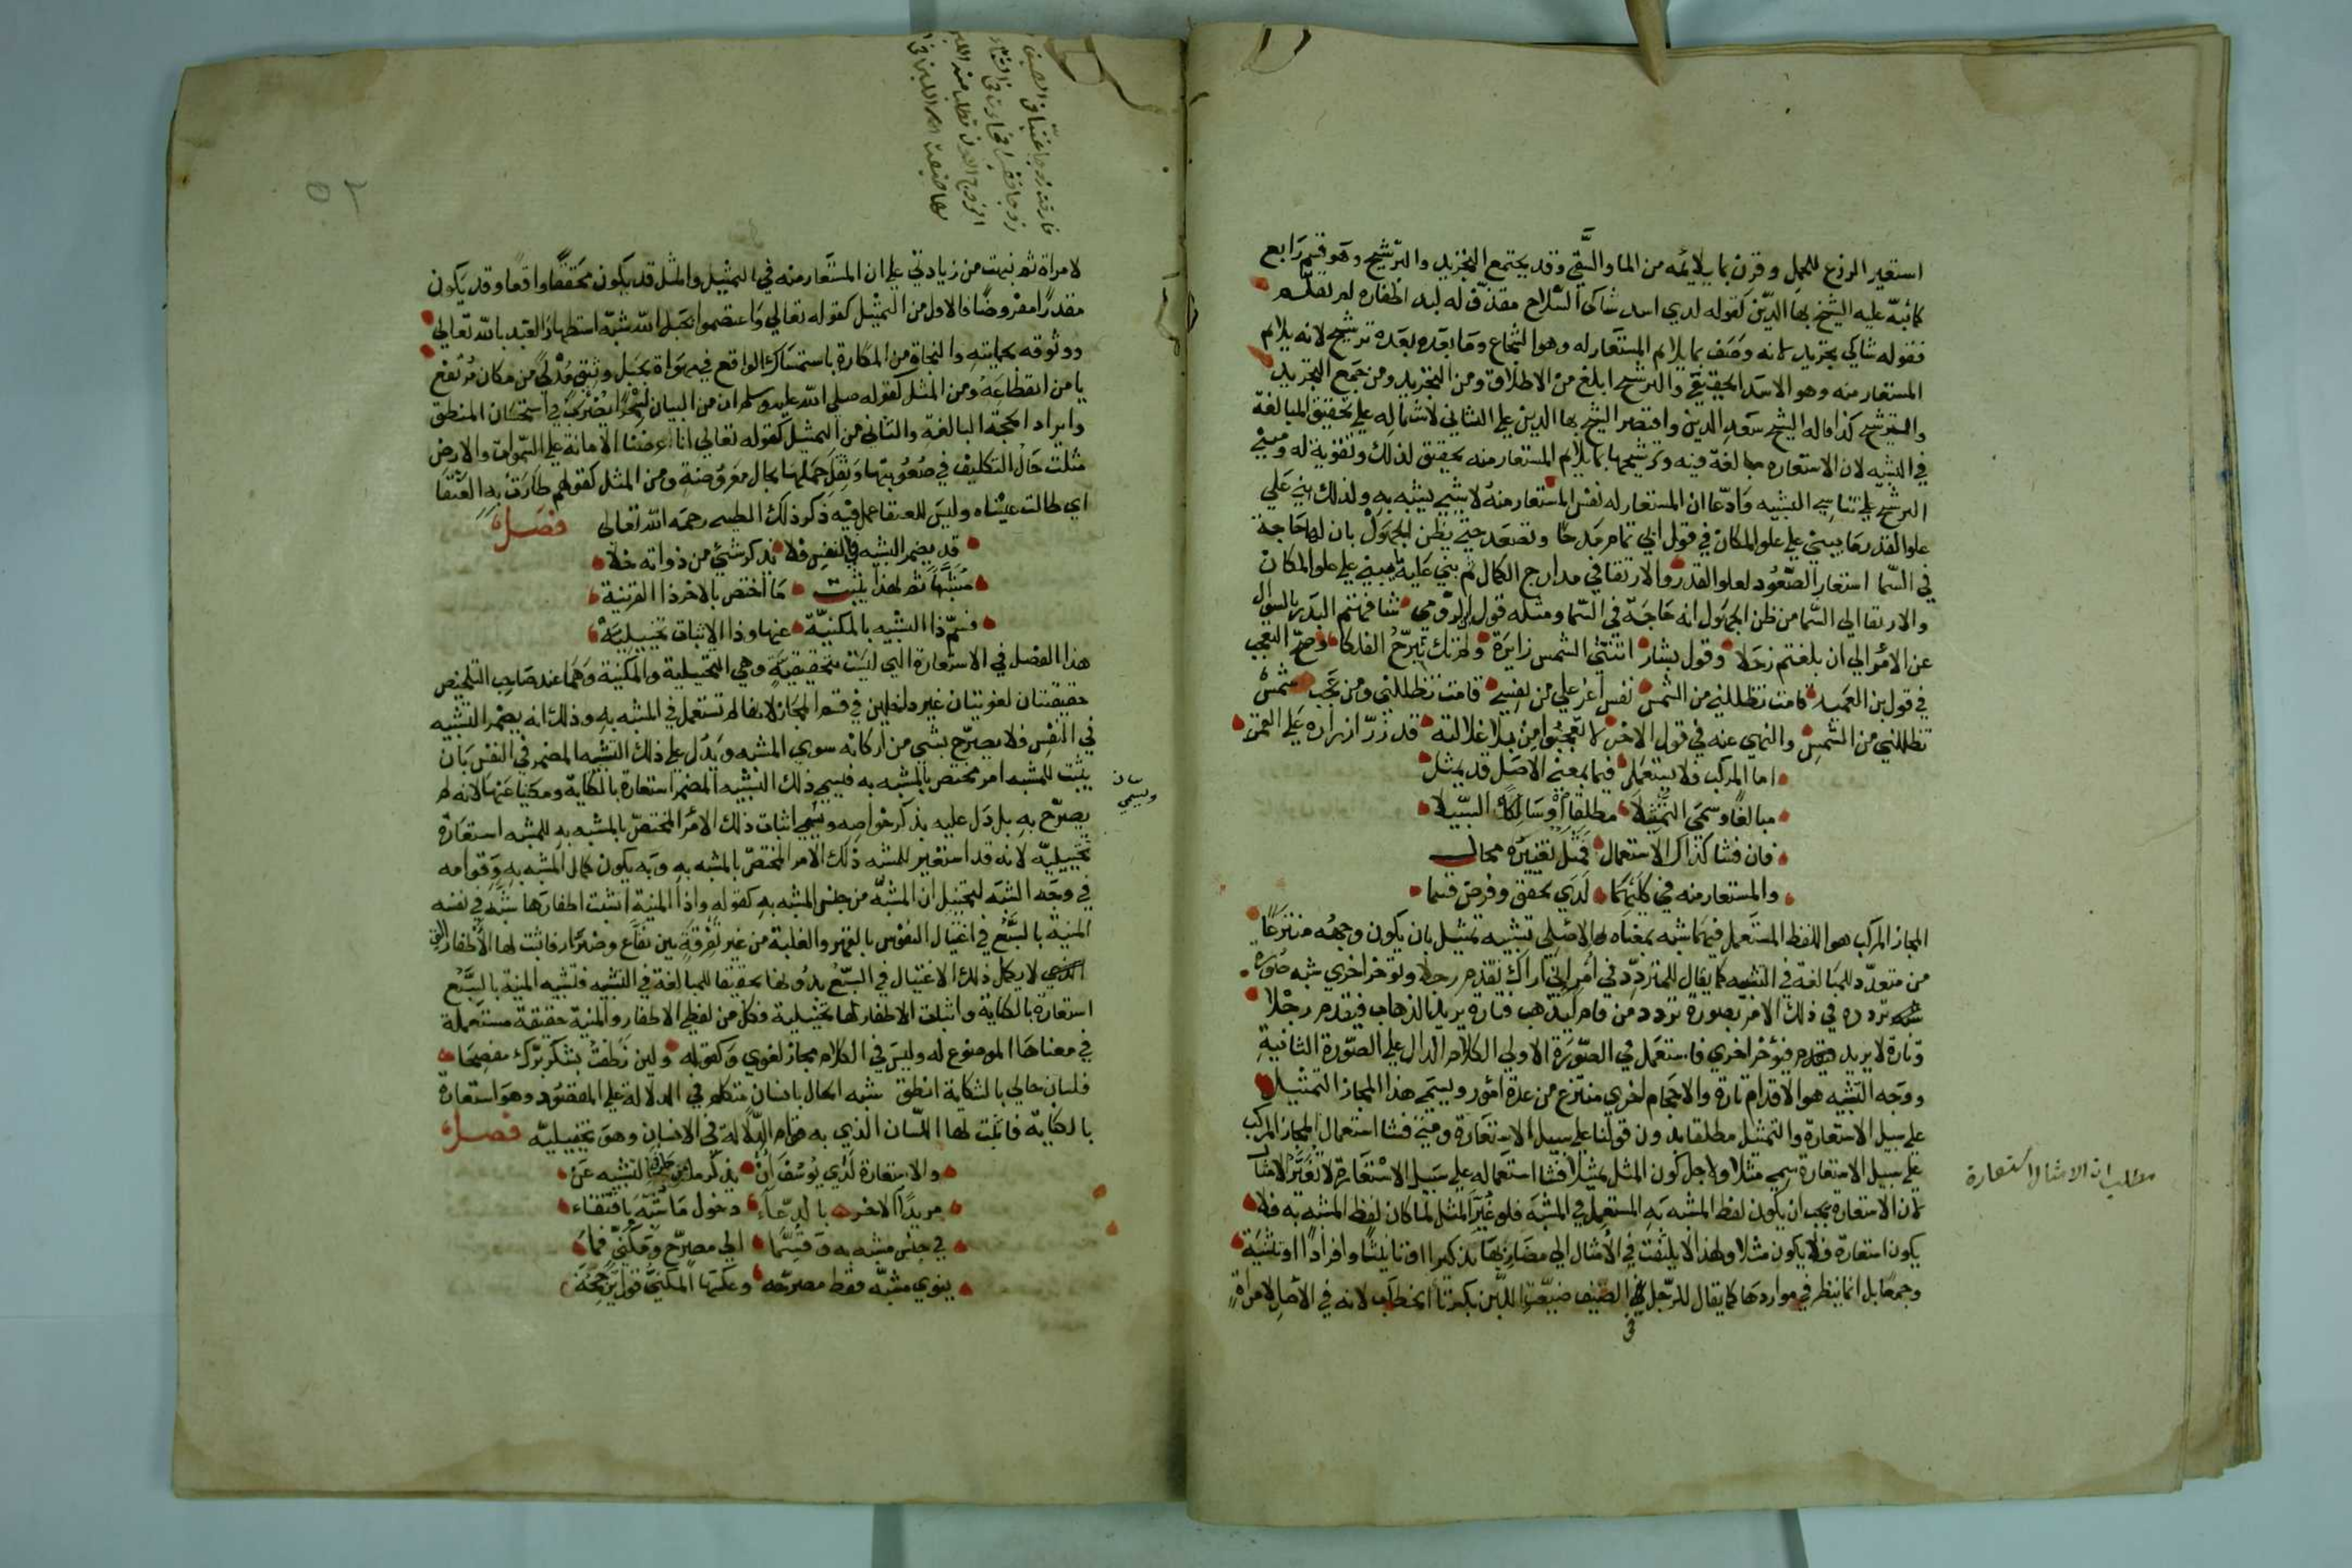 استعير الدرع للمحل وقرن بما يلايمه من الما والنقي وقد يجتمع التجريد والترشيح وهو قسم رابع
كما نبه عليه الشيخ بها الدين كقوله لدي اسد شاكي السلاح مقذف له لبد اظفاره لم تقلم
فقوله شاكي تجريد لانه وصف بما يلايم المستعار له وهو الشجاع وما بعده بعده ترشيح لانه يلايم
المستعار منه وهو الاسد الحقيقي والترشيح ابلغ من الاطلاق ومن التجريد ومن جمع التجريد
والترشيح كذا قاله الشيخ سعد الدين واقتصر الشيخ بها الدين علي الثاني لاشتماله علي تحقيق المبالغة
في التشبيه لان الاستعاره مبالغة فيه وترشيحها بما يلايم المستعار منه تحقيق لذلك وتقوية له ومبني
الترشيح علي تناسي التشبيه وادعا ان المستعار له نفس المستعار منه لا شيئ يشبه به ولذلك يبني علي
علو القدر ما يبني علي علو المكان في قول ابي تمام مدحا وتصعد حتي يظن الجهول بان له حاجة
في السما استعار الصعود لعلو القدر والارتقا في مدارج الكمال ثم بني عليه ما يبني علي علو المكان
والارتقا الي السما من ظن الجهول انه حاجة في السما ومثله قول ابن الرومي شافهتم البدر بالسوال
عن الامر الي ان بلغتم زحلا وقول بشار اتتني الشمس زايرة ولم تك تبرح الفلكا وصح التعجب
في قول بن العميد قامت تظللني من الشمس نفس اعز علي من نفسي قامت تظللني ومن عجب شمس
تظللني من الشمس والنهي عنه في قول الاخر لا تعجبوا من بلا غلالته قد زر ازراره علي القمر
اما المركب فلا يستعمل فيما بمعني الاصل قد يمثل
مبالغا وسمي التمثيلا مطلقا او سالكا السبيلا
فان فشا كذاك الاستعمال فمثل تغييره محال
والمستعار منه في كليهما لدي تحقق وفرض قسما
المجاز المركب هو اللفظ المستعمل فيما شبه بمعناه الاصلي تشبيه تمثيل بان يكون وجهه منتزعا
من متعدد للمبالغة في التشبيه كما يقال للمتردد في امر اني اراك تقدم رجلا وتوخر اخري شبه صورة
تردده في ذلك الامر بصورة تردد من قام ليذهب فتارة يريد الذهاب فيقدم رجلا
وتارة لا يريد فيؤخر اخري فاستعمل في الصورة الاولي الكلام الدال علي الصورة الثانية
ووجه التشبيه هو الاقدام تارة والاحجام اخري منتزع من عدة امور ويسمي هذا المجاز التمثيل
علي سبيل الاستعارة والتمثيل مطلقا بدون قولنا علي سبيل الاستعارة ومتي فشا استعمال المجاز المركب
علي سبيل الاستعارة سمي مثلا ولاجل كون المثل تمثيلا فشا استعماله علي سبيل الاستعارة لا تغير الامثال
لان الاستعارة يجب ان يكون لفظ المشبه به المستعمل في المشبه فلو غير المثل لما كان لفظ المشبه به فلا
يكون استعارة فلا يكون مثلا ولهذا لا يلتفت في الامثال الي مضاربها تذكيرا او تانيثا وافرادا او تثنية
وجمعا بل انما ينظر في مواردها كما يقال للرجل في الصيف ضيعت اللبن بكسر تا الخطاب لانه في الاصل لامراة
مطلب ان الامثال استعارة
لامراة ثم نبهت من زيادتي علي ان المستعار منه في التمثيل والمثل قد يكون محققا واقعا وقد يكون
مقدرا مفروضا فالاول من التمثيل كقوله تعالي واعتصموا بحبل الله شبه استظهار العبد بالله تعالي
ووثوقه بحمايته والنجاة من المكارة باستمساك الواقع في مهواة بحبل وثيق مدلي من مكان مرتفع
يامن انقطاعه ومن المثل كقوله صلي الله عليه وسلم ان من البيان لسحرا يضرب في استحسان المنطق
وايراد الحجة البالغة والثاني من التمثيل كقوله تعالي انا عرضنا الامانة علي السموات والارض
مثلت حال التكليف في صعوبتها وثقل حملها بحال معروضة ومن المثل كقولهم طارت به العنقا
اي طالت غيبته وليس للعنقا عمل فيه ذكر ذلك الطيبي رحمه الله تعالي فصل
قد يضمر التشبيه في النفس فلا يذكر شئ من ذواته خلا
مشبها ثم لهذا يثبت ما اختص بالاخر ذا القرينة
فسم ذا التشبيه بالمكنية عنها وذا الاثبات تخييلية
هذا الفصل في الاستعارة التي ليست تحقيقية وهي التخييلية والمكنية وهما عند صاحب التلخيص
حقيقتان لغويتان غير داخلين في قسم المجاز لانها لم تستعمل في المشبه به وذلك انه يضمر التشبيه
في النفس فلا يصرح بشي من اركانه سوي المشبه ويدل علي ذلك التشبيه المضمر في النفس بان
يثبت للمشبه امر مختص بالمشبه به فيسمي ذلك التشبيه المضمر استعارة بالكناية ومكنيا عنها لانه لم
يصرح به بل دل عليه بذكر خواصه ويسمي اثبات ذلك الامر المختص بالمشبه به للمشبه استعارة
تخييلية لانه قد استعير للمشبه ذلك الامر المختص بالمشبه به وبه يكون كمال المشبه به وقوامه
في وجه الشبه لتخييل ان المشبه من جنس المشبه به كقوله واذا المنية انشبت اظفارها شبه في نفسه
المنية بالسبع في اغتيال النفوس بالقهر والغلبة من غير تفرقة بين نفاع وضرار فاثبت لها الاظفار التي
لا يكمل ذلك الاغتيال في السبع بدونها تحقيقا للمبالغة في التشبيه فتشبيه المنية بالسبع
استعارة بالكناية واثبات الاظفار لها تخييلية فكل من لفظي الاظفار والمنية حقيقة مستعملة
في معناها الموضوع له وليس في الكلام مجاز لغوي وكقوله ولين نطقت بشكر برك مفصحا
فلسان حالي بالشكاية انطق شبه الحال بانسان متكلم في الدلالة علي المقصود وهو استعارة
بالكناية فاثبت لها اللسان الذي به قوام الدلالة في الانسان وهو تخييلية فصل
والاستعارة لدي يوسف ان يذكر ما من طرفي التشبيه عن
مريدا الاخر بالادعاء دخول ما شبه باقتفاء
في جنس مشبه به وقسما الي مصرح ومكني فما
ينوي مشبه فقط مصرحه وعكسها المكني